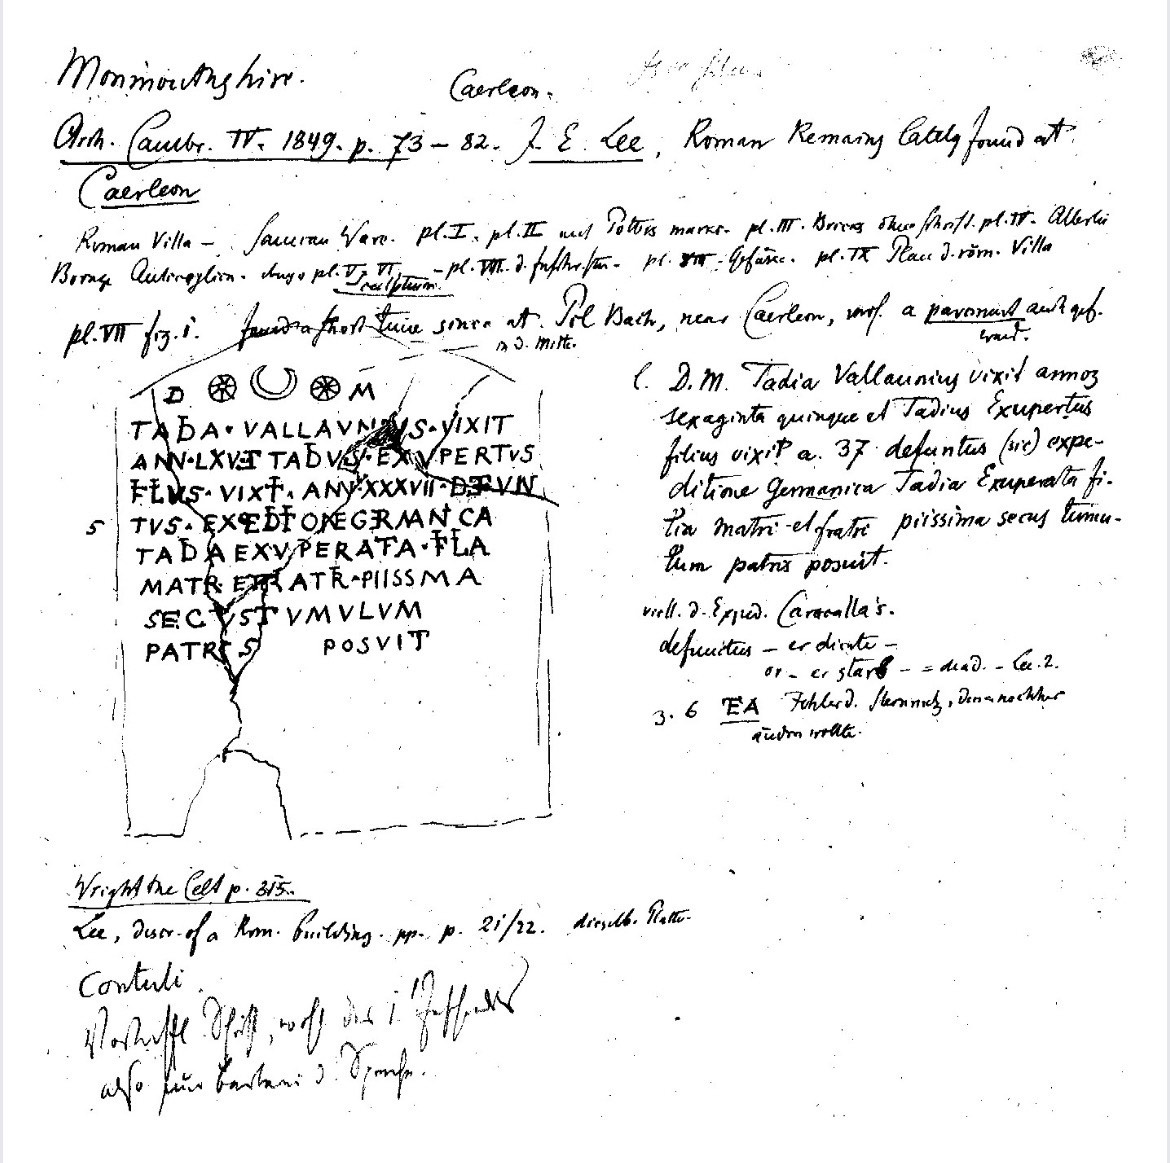 Monmouthshire.
Caerleon.
Arch. Cambr. IV. 1849. p. 73 – 82. J. E. Lee, Roman Remains lately found at
Caerleon
Roman Villa – Samian Ware. pl. I. pl. II mit Potters marks. pl. III. Bricks ohne Schrift. pl. IV. Allerlei
Bronze pl. V, VI, – pl. VII. d. Inschriften. pl. VIII. Gefässe. pl. IX Plan d. röm. Villa
sculptur.
pl. VII fig. 1. found a short time since at Pil Bach, near Caerleon, wo a pavement auch gef.
in d. Mitte.
wurd.
D M
TADA · VALLAVNIVS · VIXIT
ANN · LXVET TADVS · EXVPERTVS
FLVS · VIXT · ANN · XXXVII · DEFVN
5 TVS · EXPEDTONEGERMANCA
TADAEXVPERATA · FLA
MATR ETFRATR · PIISSMA
SECVSTVMVLVM
PATRIS POSVIT
l. D. M. Tadia Vallaunius vixit annos
sexaginta quinque et Tadius Exupertus
filius vixit a. 37 defuntus (sic) expe-
ditione Germanica Tadia Exuperata fi-
lia matri et fratri piissima secus tumu-
lum patris posuit.
viell. d. Exped. Caracalla's.
defunctus – er diente –
or – er starb – = dead. – Lee. 2.
3. 6 EA Fehler d. Steinmetz, den nachher
ändern wollte.
Wright the Celt p. 315.
Lee, descr. of a Rom. building. pp. p. 21/22. dieselb. Platte.
Contuli.
Schrift, wohl des 1. Jahrhunderts
also d. Sprache.